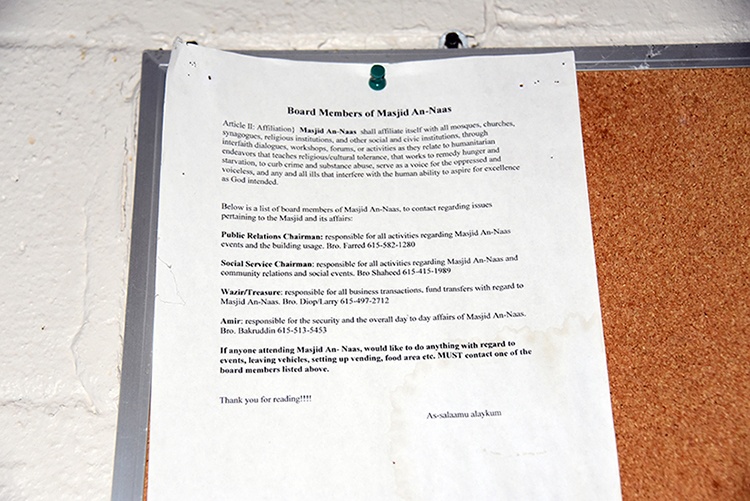 Board Members of Masjid An-Naas
Article II: Affiliation] Masjid An-Naas shall affiliate itself with all mosques, churches,
synagogues, religious institutions, and other social and civic institutions, through
interfaith dialogues, workshops, forums, or activities as they relate to humanitarian
endeavors that teaches religious/cultural tolerance, that works to remedy hunger and
starvation, to curb crime and substance abuse, serve as a voice for the oppressed and
voiceless, and any and all ills that interfere with the human ability to aspire for excellence
as God intended.
Below is a list of board members of Masjid An-Naas, to contact regarding issues
pertaining to the Masjid and its affairs:
Public Relations Chairman: responsible for all activities regarding Masjid An-Naas
events and the building usage. Bro. Farred 615-582-1280
Social Service Chairman: responsible for all activities regarding Masjid An-Naas and
community relations and social events. Bro Shaheed 615-415-1989
Wazir/Treasure: responsible for all business transactions, fund transfers with regard to
Masjid An-Naas. Bro. Diop/Larry 615-497-2712
Amir: responsible for the security and the overall day to day affairs of Masjid An-Naas.
Bro. Bakruddin 615-513-5453
If anyone attending Masjid An- Naas, would like to do anything with regard to
events, leaving vehicles, setting up vending, food area etc. MUST contact one of the
board members listed above.
Thank you for reading!!!!
As-salaamu alaykum